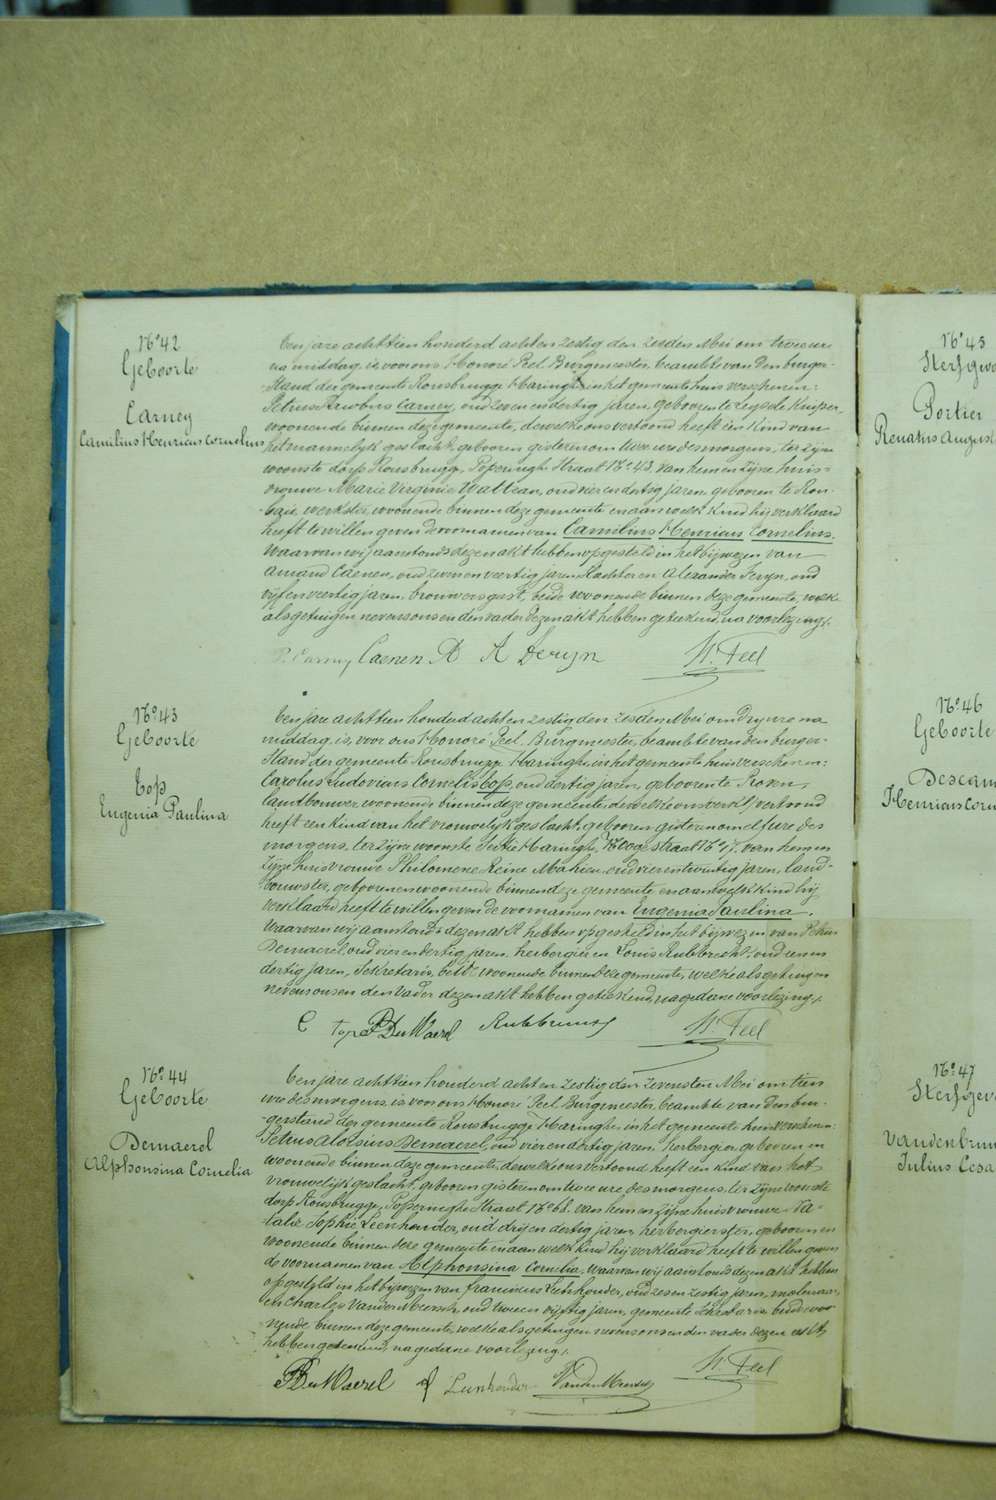 N° 42
Geboorte
Carney
Camilius Henricus Cornelius
Ten jare achttien honderd acht en zestig den zesden Mei om twee ure
na middag, is voor ons Honoré Feel Burgmeester, beambte van den burger-
-stand der gemeente Rousbrugge Haringhe in het gemeente huis verschenen:
Petrus Jacobus Carney, oud zeven en dertig jaren, geboren te Leysele Kuiper,
woonende binnen deze gemeente, dewelke ons vertoond heeft een Kind van
het mannelyk geslacht, geboren gisteren om twee ure des morgens, ter zyne
woonste dorp Rousbrugge, Poperinghe Straat N° 43, van hem en zyne huis-
vrouwe Marie Virginie Watteau, oud vier en dertig jaren, geboren te Rou-
werkster, woonende binnen deze gemeente en aan welk Kind hy verklaard
heeft te willen geven de voornamen van Camilius Henricus Cornelius.
Waarvan wy aanstonds dezen akt hebben opgesteld in het bywezen van
Amand Caenen, oud twee en veertig jaren, en Alexander Deryn, oud
vyf en veertig jaren, brouwersgast, beide woonende binnen deze gemeente, welke
als getuigen nevens ons en den vader dezen akt hebben geteekend, na voorlezing.
P. Carney Caenen A A Deryn H. Feel
N° 43
Geboorte
Top
Eugenia Paulina
Ten jare achttien honderd acht en zestig den zesden Mei om dry ure na
middag, is, voor ons Honoré Feel, Burgmeester, beambte van den burger-
stand der gemeente Rousbrugge Haringhe, in het gemeente huis verschenen:
Carolus Ludovicus Cornelis Top, oud dertig jaren, geboren te
landbouwer, woonende binnen deze gemeente, dewelke ons vertoond
heeft een Kind van het vrouwelyk geslacht, geboren gisteren om elf ure des
morgens, ter zyne woonste, Sectie Haringhe, Hooge straat N° 17, van hem en
zyne huisvrouwe Philomene Reine Mahieu, oud vier en twintig jaren, land-
bouwster, geboren en woonende binnen deze gemeente, en aan welk kind hy
verklaard heeft te willen geven de voornamen van Eugenia Paulina.
Waarvan wy aanstonds dezen akt hebben opgesteld in het bywezen van Petrus
Demaerel, oud vier en dertig jaren, herbergier en Louis Rubbrecht, oud
dertig jaren, Sekretaris, beide woonende binnen deze gemeente, welke als getuigen
nevens ons en den vader dezen akt hebben geteekend, na gedane voorlezing.
C Top P. DeMaerel Rubbrecht H. Feel
N° 44
Geboorte
Demaerel
Alphonsina Cornelia
Ten jare achttien honderd acht en zestig den zevensten Mei om tien
ure des morgens, is voor ons Honoré Feel Burgmeester, beambte van den bur-
-gerstand der gemeente Rousbrugge Haringhe, in het gemeente huis verschenen:
Petrus Aloisius Demaerel, oud vier en dertig jaren, herbergier, geboren en
woonende binnen deze gemeente, dewelke ons vertoond heeft een Kind van het
vrouwelyk geslacht, geboren gisteren om twee ure des morgens, ter zyne woonste
dorp Rousbrugge, Poperinghe Straat N° 68, van hem en zyne huisvrouwe Na-
talie Sophie Leenhouder, oud dry en dertig jaren, herbergierster, geboren en
woonende binnen deze gemeente en aan welk Kind hy verklaard heeft te willen geven
de voornamen van Alphonsina Cornelia, waarvan wy aanstonds dezen akt hebben
opgesteld in het bywezen van Franciscus Leenhouder, oud zes en zestig jaren, molenaar,
en Charles VanderMeersch, oud twee en vyftig jaren, gemeente sekretaris, beide woo-
nende binnen deze gemeente, welke als getuigen nevens ons en den vader dezen akt
hebben geteekend, na gedane voorlezing.
P. DeMaerel F Leenhouder VanderMeersch H. Feel
N° 45
Portier
N° 46
Geboorte
N° 47